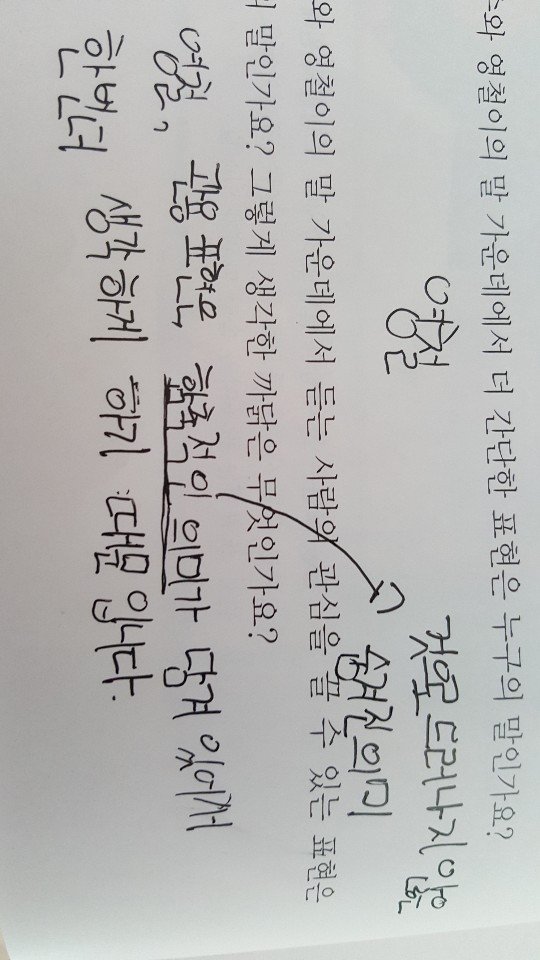 와 영철이의 말 가운데에서 더 간단한 표현은 누구의 말인가요?
영철
겉으로 드러나지 않은
숨겨진 의미
와 영철이의 말 가운데에서 듣는 사람의 관심을 끌 수 있는 표현은
말인가요? 그렇게 생각한 까닭은 무엇인가요?
영철, 관용 표현은 함축적인 의미가 담겨 있어서
한번더 생각하게 하기 때문 입니다.